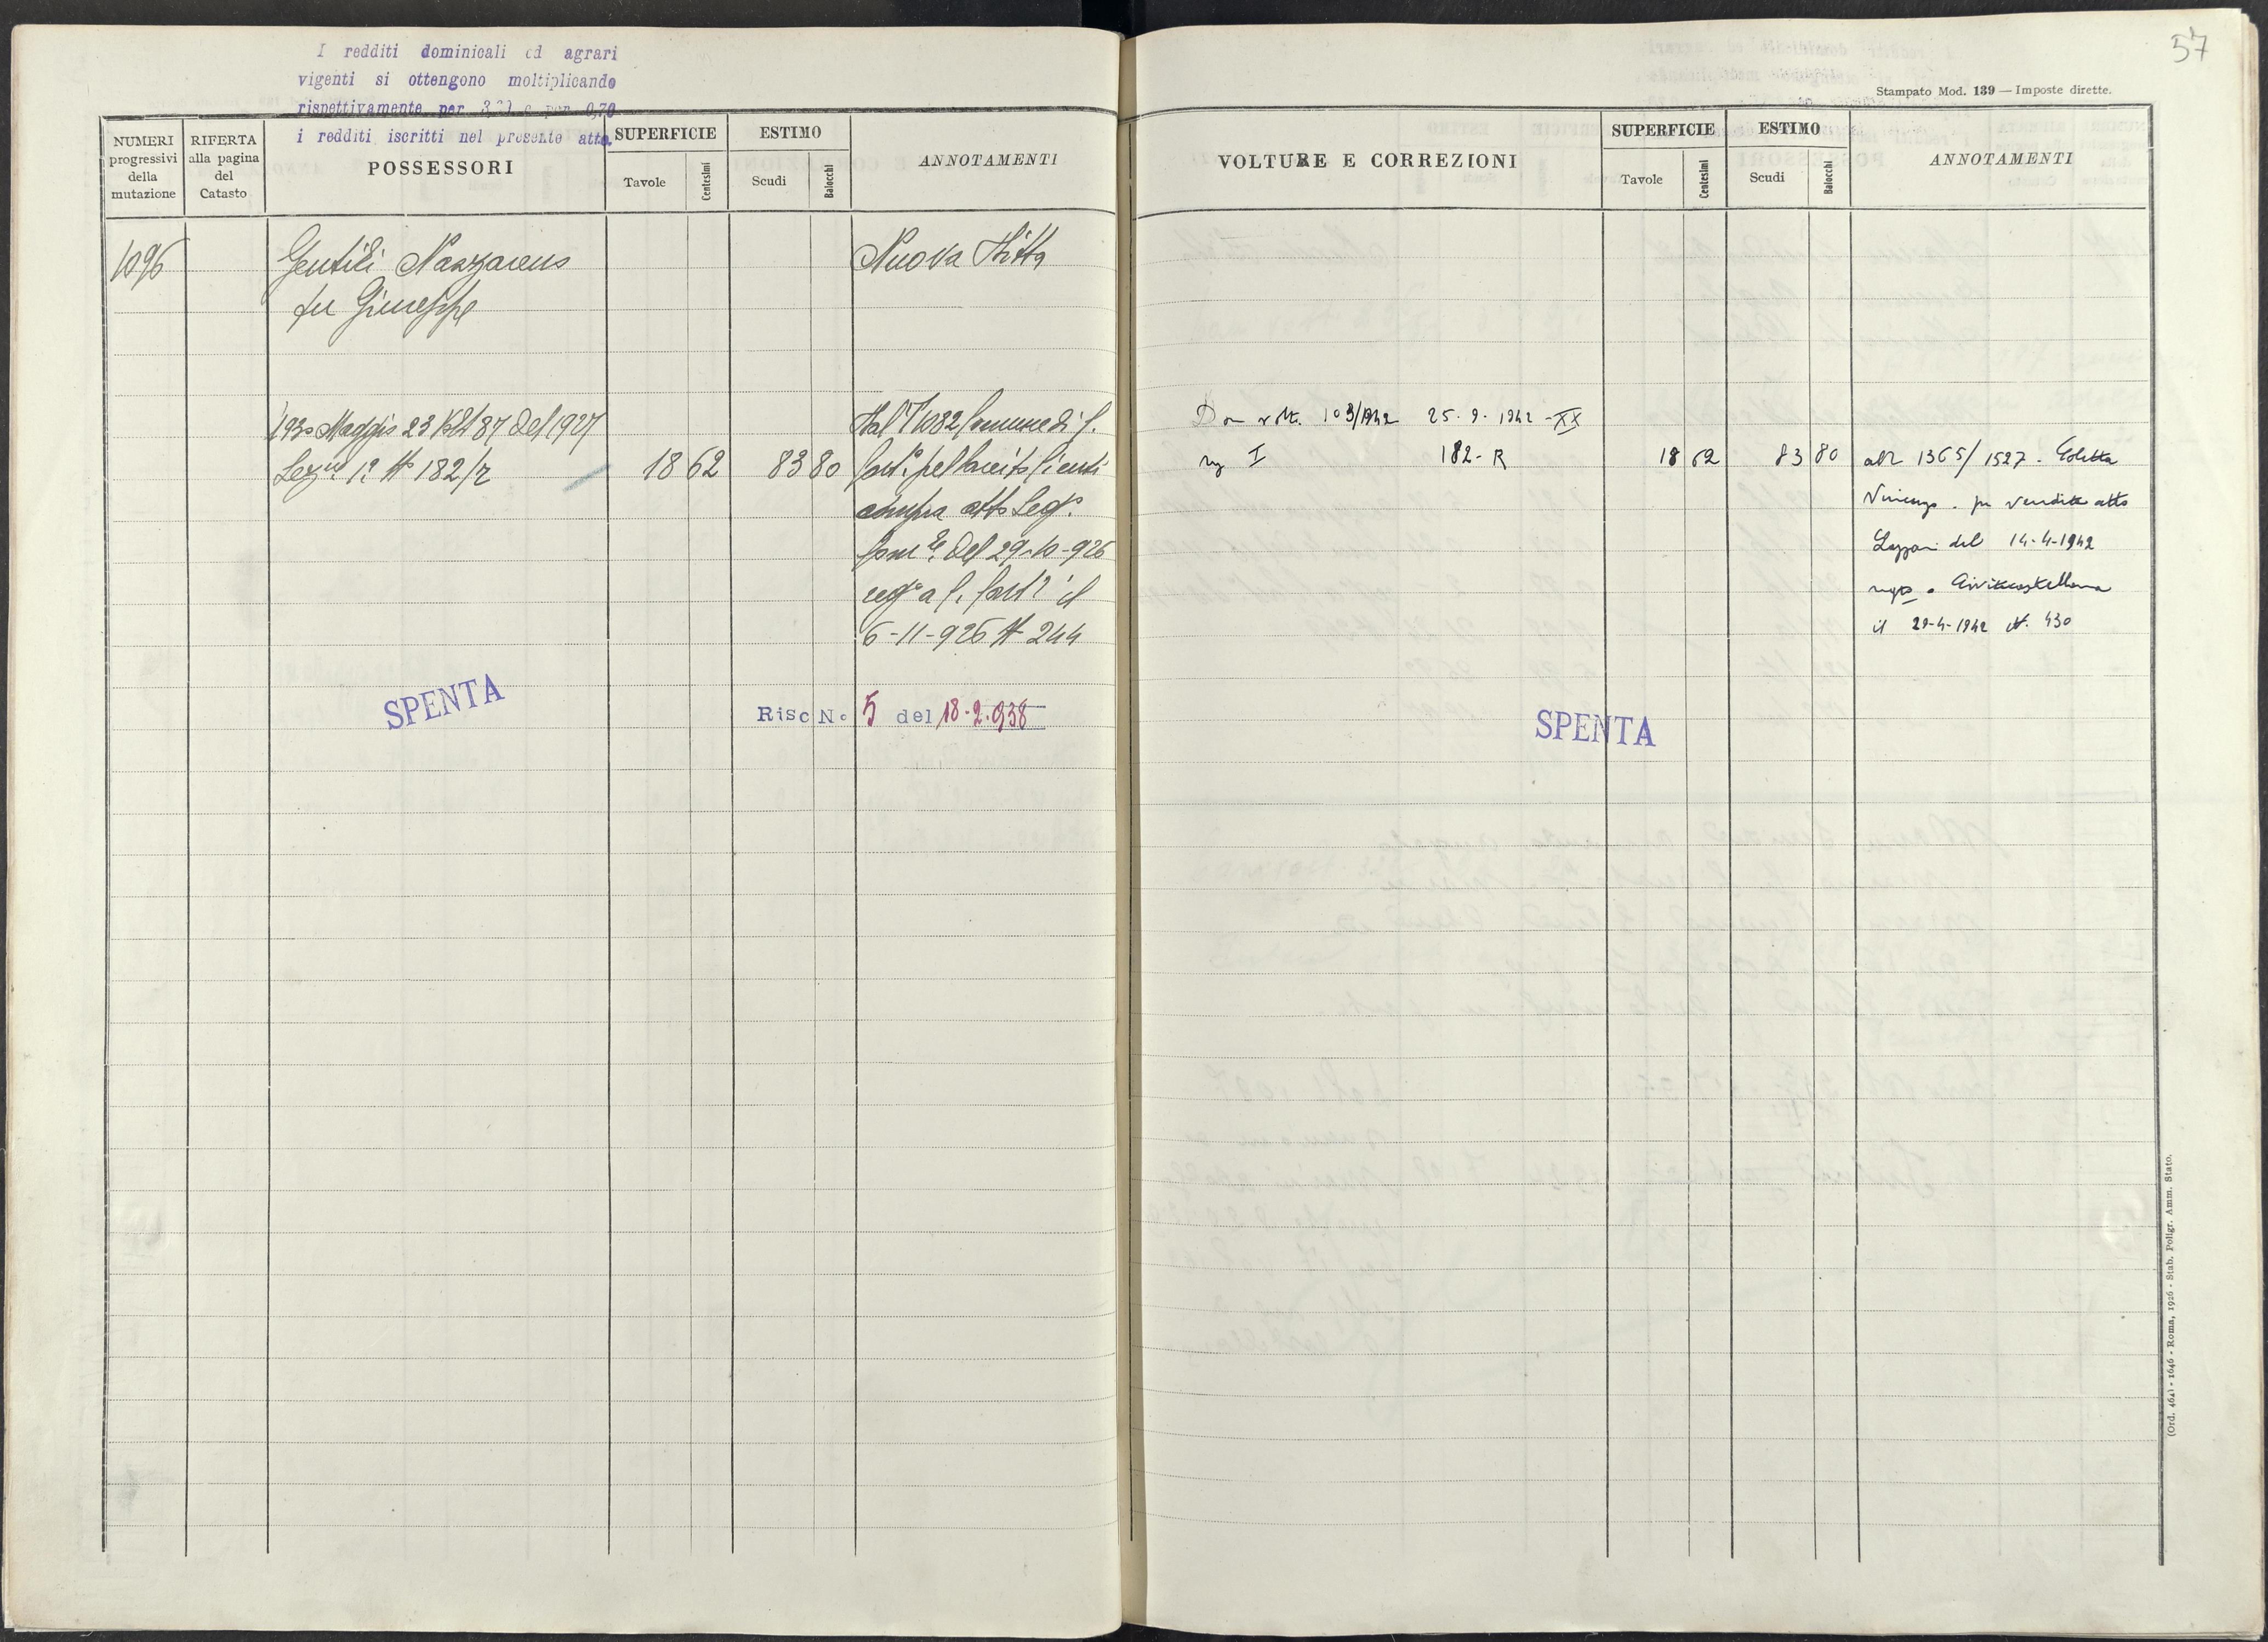 I redditi dominicali ed agrari
vigenti si ottengono moltiplicando
rispettivamente per e per 0,70
i redditi iscritti nel presente atto.
NUMERI progressivi della mutazione
RIFERTA alla pagina del Catasto
POSSESSORI
SUPERFICIE
Tavole
Centesimi
ESTIMO
Scudi
Baiocchi
ANNOTAMENTI
1096
Gentili Nazzareno
fu Giuseppe
Nuova Ditta
1930 Maggio 23 Vol 87 del 1927
Sez. 1ª N 182/r
18 62
83 80
Dal 1082 Comune di C.
compra atto Seg.
Com.le del 29-10-926
reg° a C. Cast. il
6-11-926 N 244
SPENTA
Risc N. 5 del 18.2.938
57
Stampato Mod. 139 — Imposte dirette.
VOLTURE E CORREZIONI
SUPERFICIE
Tavole
Centesimi
ESTIMO
Scudi
Baiocchi
ANNOTAMENTI
Con volt. 103/1942 25.9.1942-XX
I 182-R
18 62
83 80
all 1365/1527. Coletta
Vincenzo. per vendita atto
Lazzari del 14-4-1942
Civitacastellana
il 29-4-1942 N. 430
SPENTA
(Ord. 464) - 1646 - Roma, 1926 - Stab. Poligr. Amm. Stato.